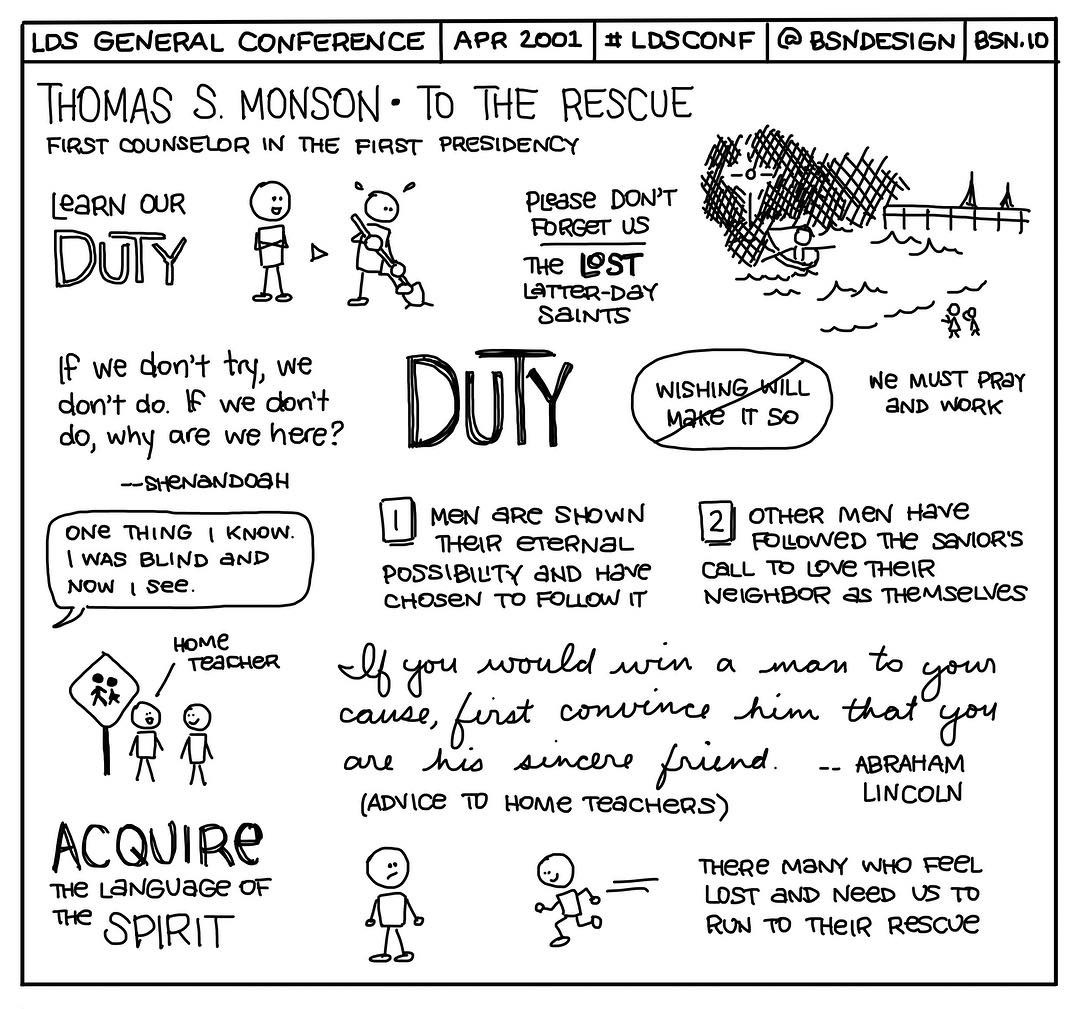 LDS GENERAL CONFERENCE
APR 2001
# LDSCONF
@BSNDESIGN
BSN.IO
THOMAS S. MONSON • TO THE RESCUE
FIRST COUNSELOR IN THE FIRST PRESIDENCY
LEARN OUR
DUTY
PLEASE DON'T
FORGET US
THE LOST
LATTER-DAY
SAINTS
If we don't try, we
don't do. If we don't
do, why are we here?
--SHENANDOAH
DUTY
WISHING WILL
MAKE IT SO
WE MUST PRAY
AND WORK
ONE THING I KNOW.
I WAS BLIND AND
NOW I SEE.
1 MEN ARE SHOWN
THEIR ETERNAL
POSSIBILITY AND HAVE
CHOSEN TO FOLLOW IT
2 OTHER MEN HAVE
FOLLOWED THE SAVIOR'S
CALL TO LOVE THEIR
NEIGHBOR AS THEMSELVES
HOME
TEACHER
If you would win a man to your
cause, first convince him that you
are his sincere friend.
-- ABRAHAM
LINCOLN
(ADVICE TO HOME TEACHERS)
ACQUIRE
THE LANGUAGE OF
THE SPIRIT
THERE MANY WHO FEEL
LOST AND NEED US TO
RUN TO THEIR RESCUE